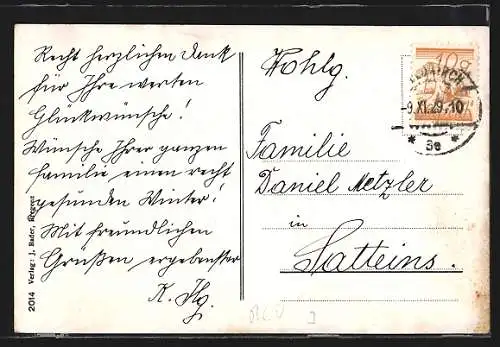 Recht herzlichen Dank
für Ihre werten
Glückwünsche!
Wünsche Ihrer ganzen
Familie einen recht
gesunden Winter!
Mit freundlichen
Grüßen ergebenster
Wohlg.
Familie
Daniel Metzler
in
Satteins.
-9.XI.29.10
* 3e *
2014 Verlag: J. Bader, Bregenz